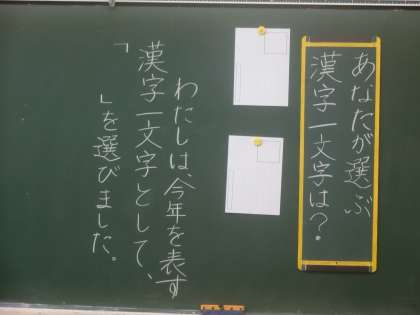 あなたが選ぶ
漢字一文字は?
わたしは、今年を表す
漢字一文字として、
「　　」を選びました。